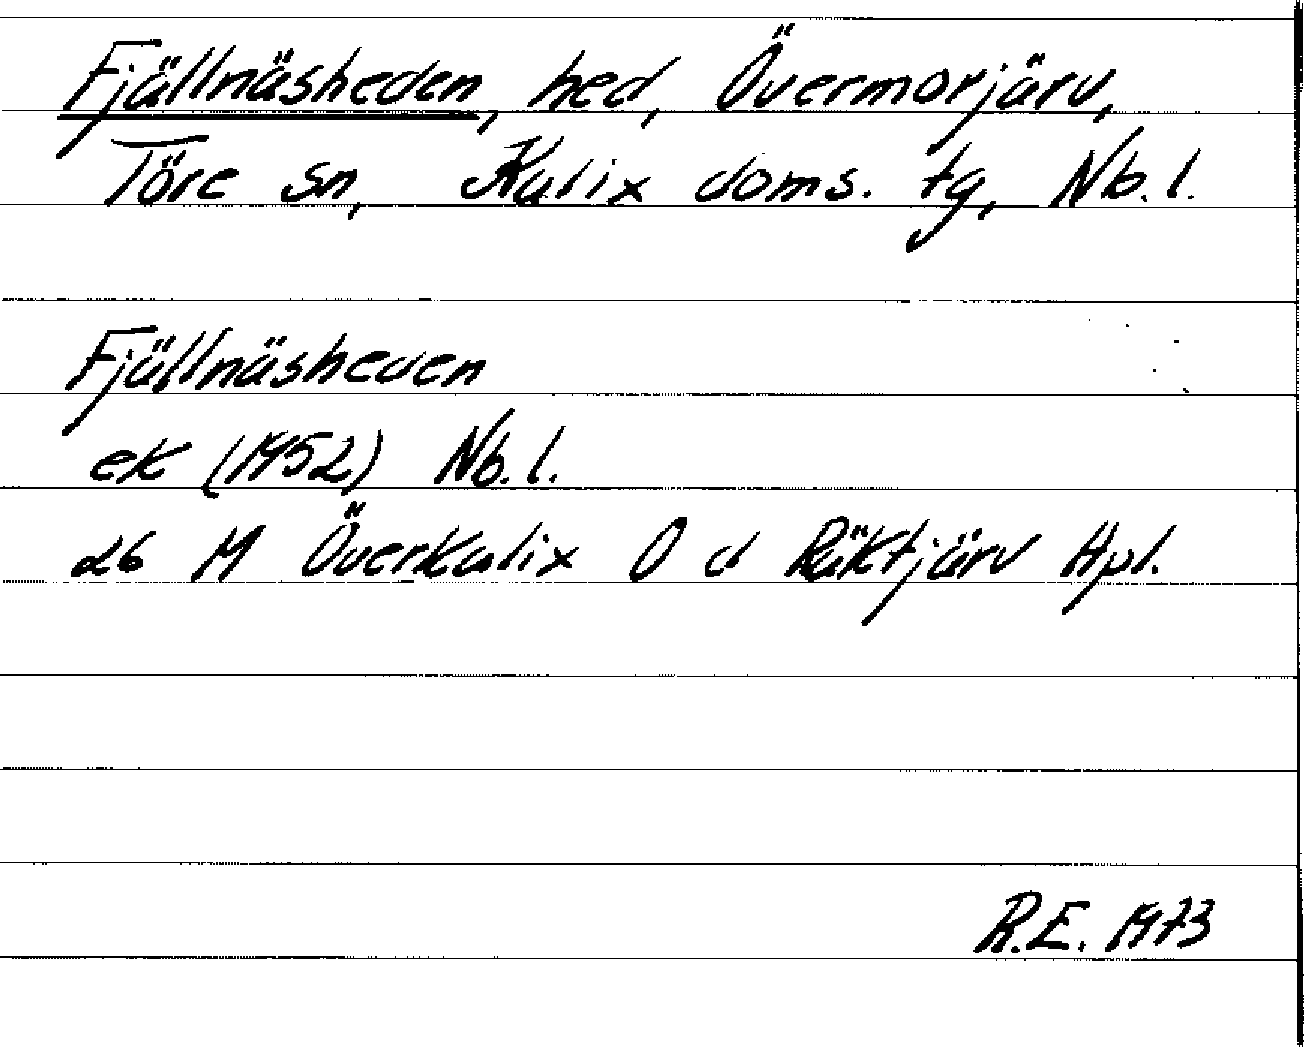 Fjällnäsheden, hed, Övermorjärv,
Töre sn, Kalix doms. tg, Nb.l.
Fjällnäsheden
ek (1952) Nb.l.
26 M Överkalix O d Räktjärv Hpl.
R.E. 1973